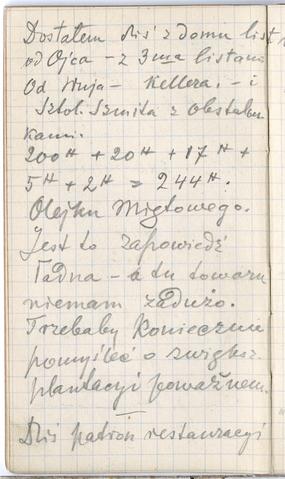 Dostałem dziś z domu list
od Ojca – z 3ma listami
Od Wuja – Kellera. – i
Sztol. Szmita z obstalun
kami.
200 H + 20 H + 17 H +
5 H + 2 H = 244 H.
Olejku Miętowego.
Jest to zapowiedź
ładna – a tu towaru
niemam zadużo.
Trzebaby Koniecznie
pomyśleć o zwiększ.
plantacyi poważnem.
Dziś patron restauracyi